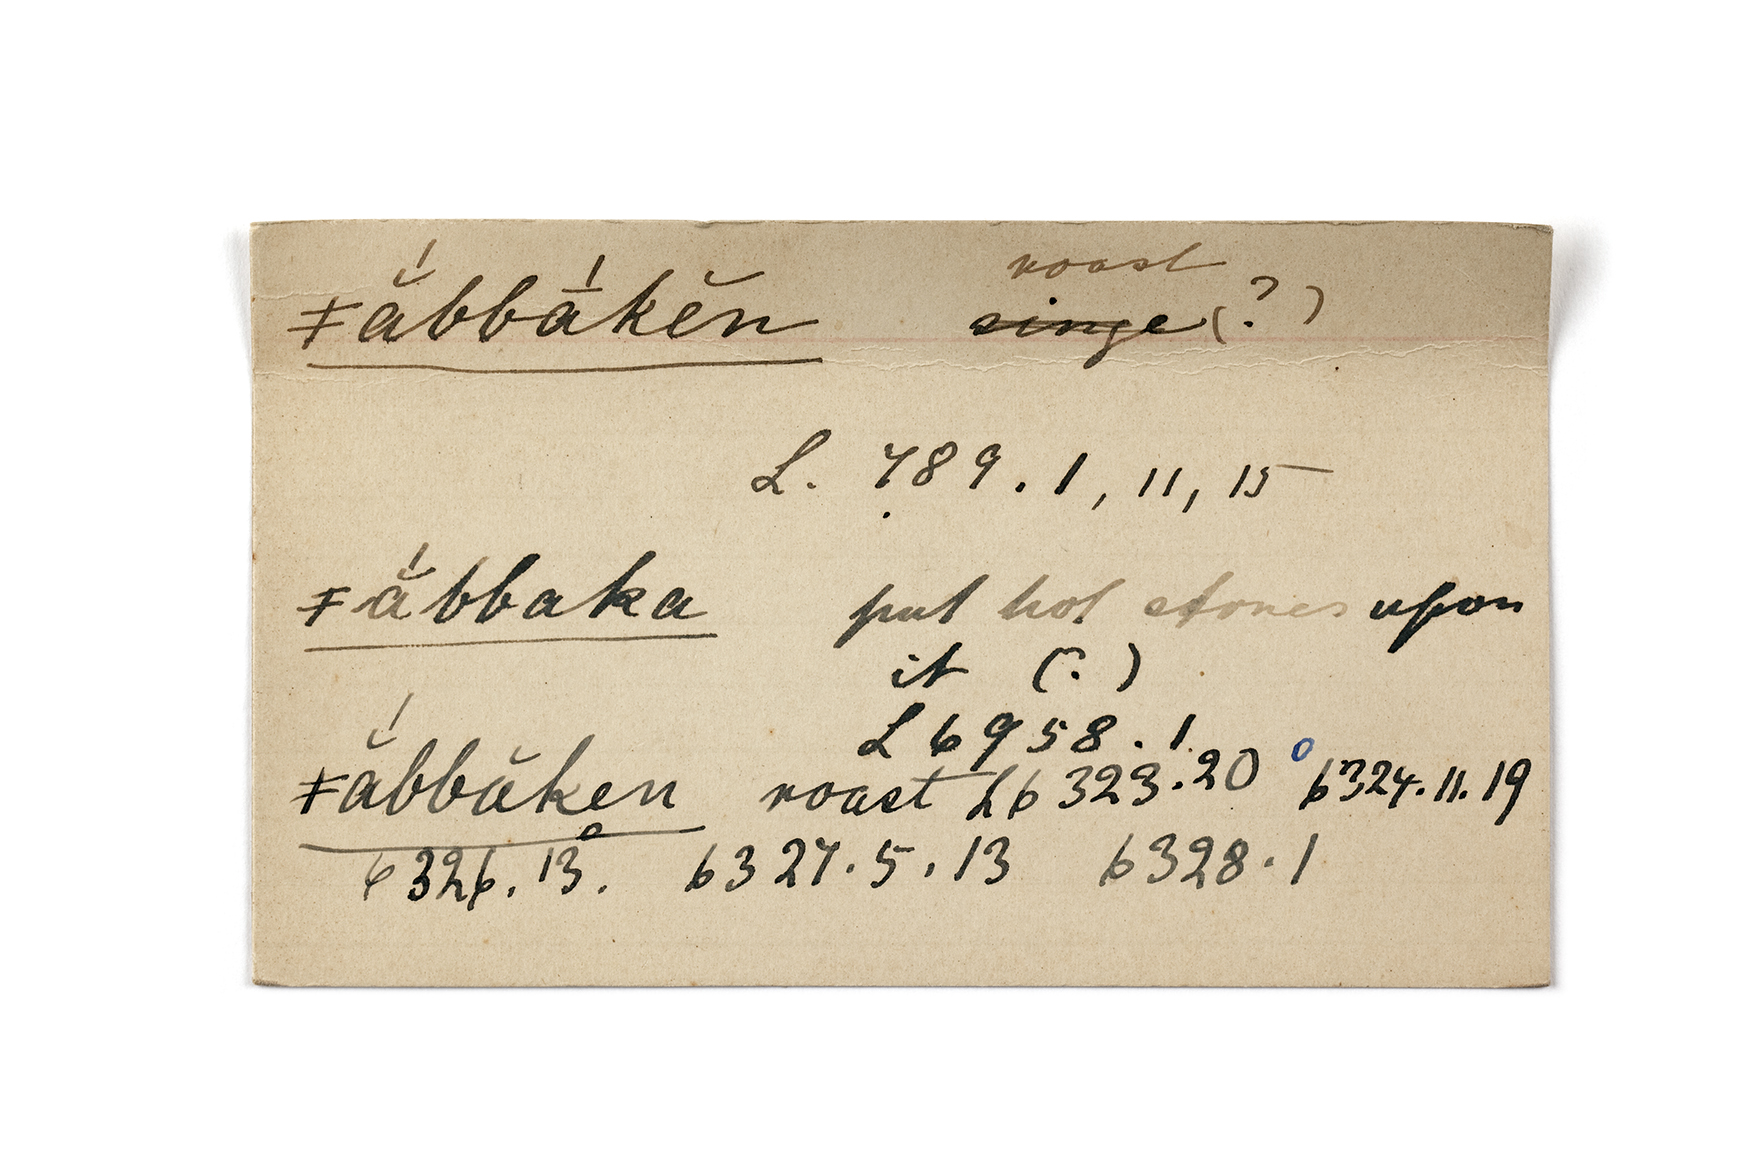 roast
ǂắbbā́kĕn singe (?)
L. 789.1, 11, 15
ǂắbbaka put hot stones upon
it (?)
L 6958.1
ǂắbbăken roast L 6323.20 6324.11.19
6326.13. 6327.5.13 6328.1